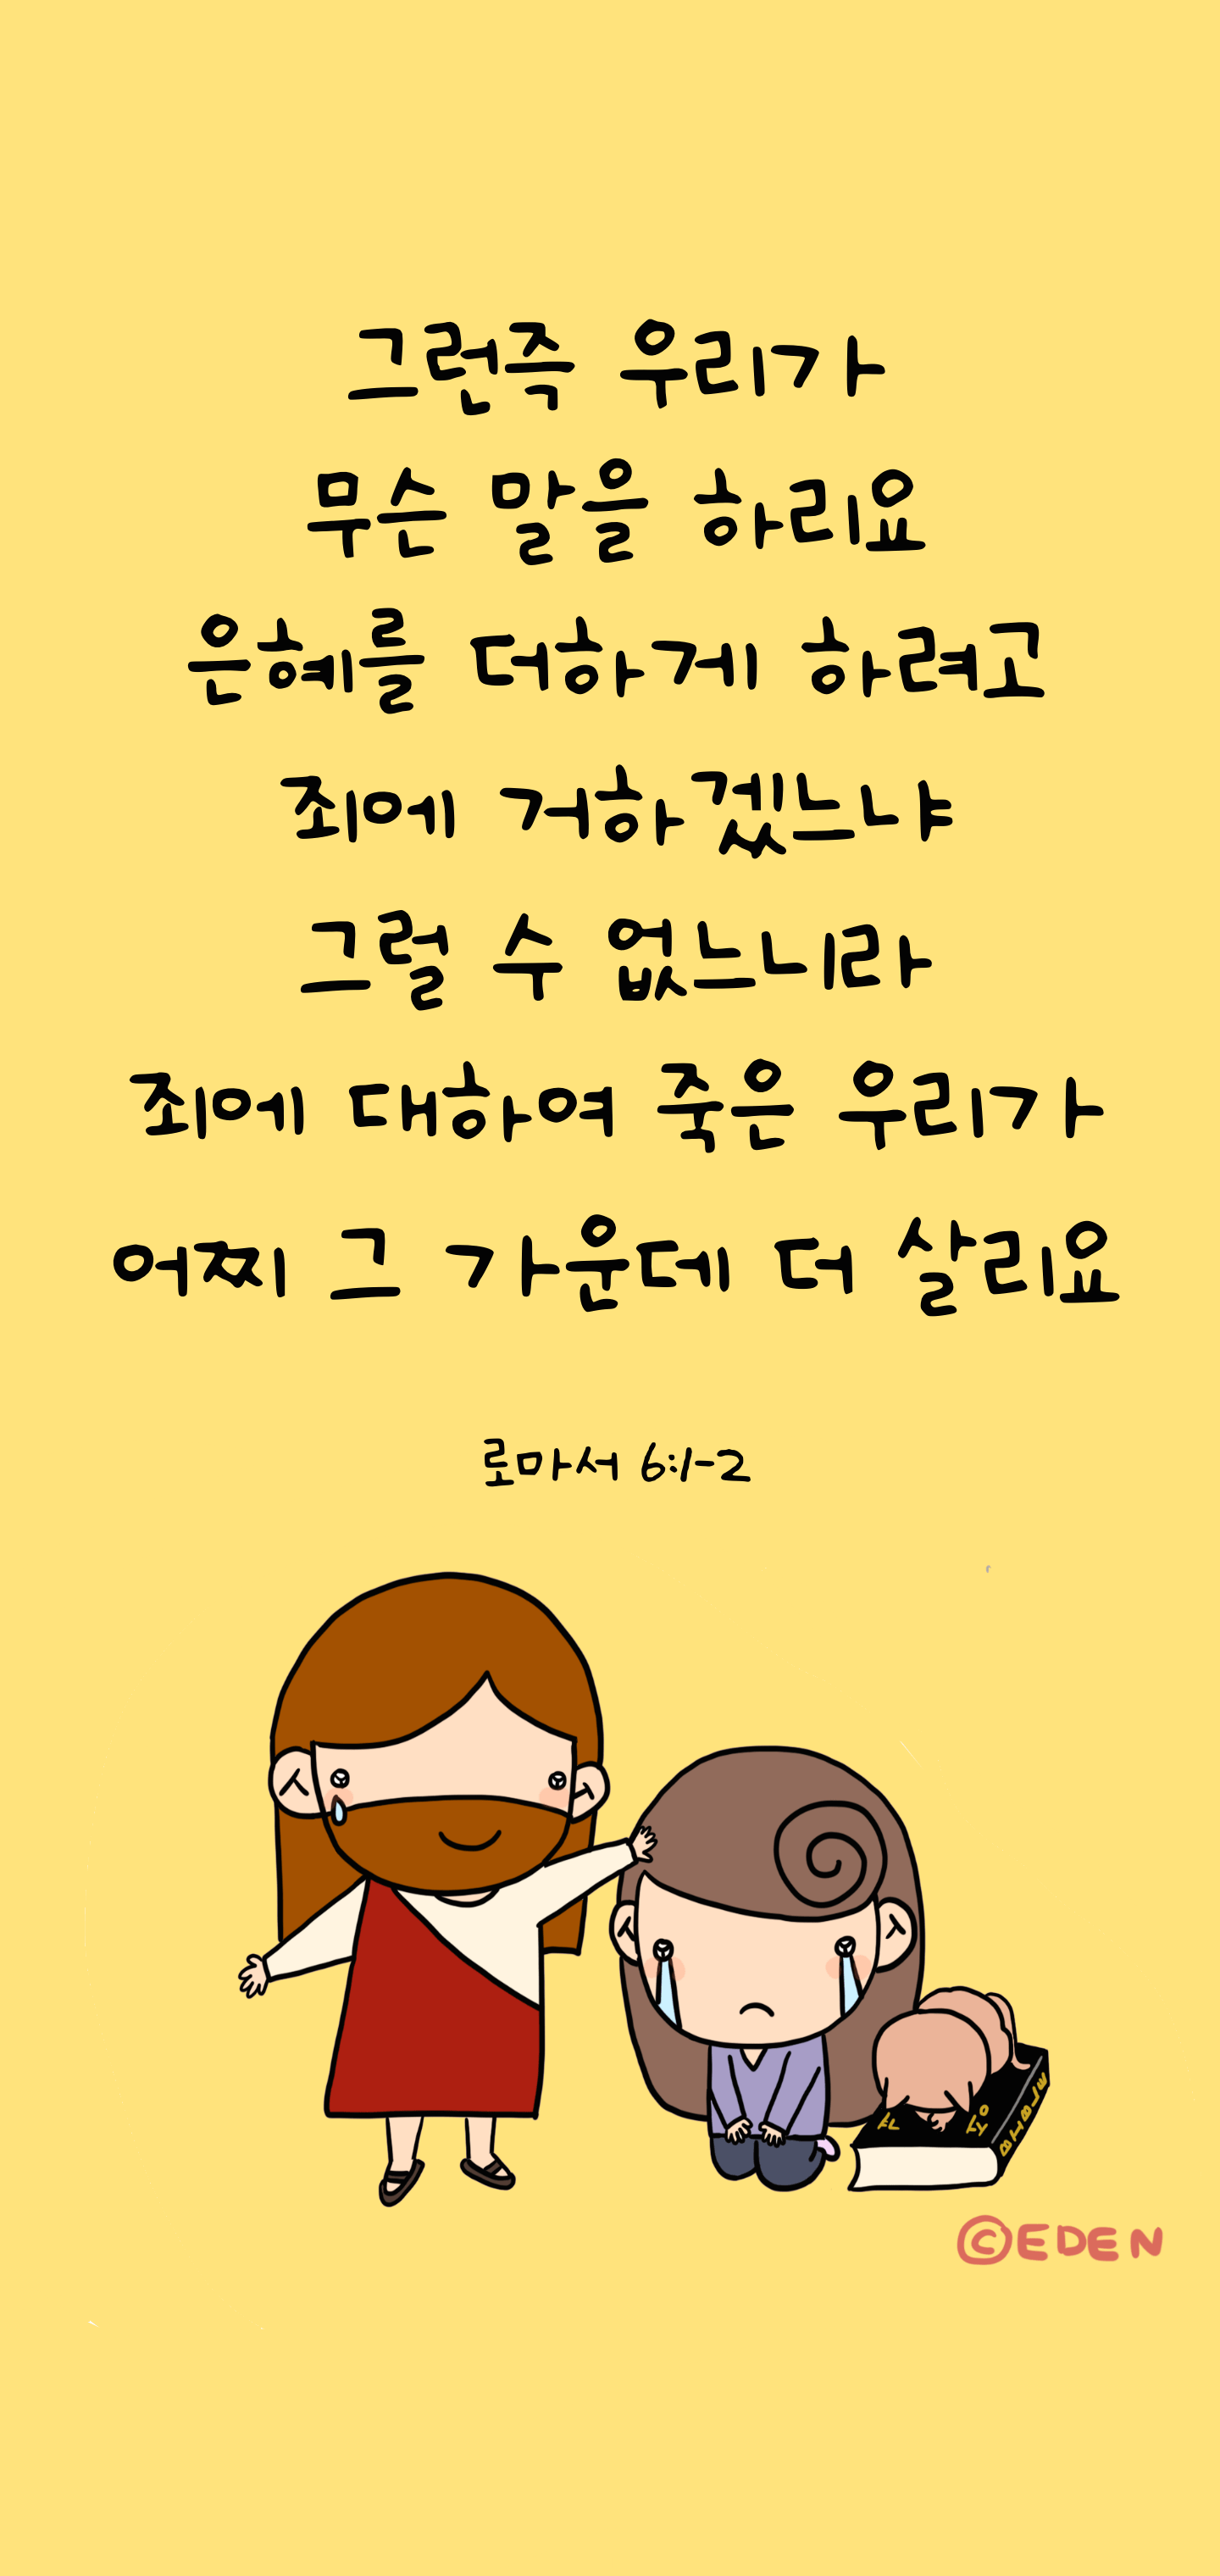 그런즉 우리가
무슨 말을 하리요
은혜를 더하게 하려고
죄에 거하겠느냐
그럴 수 없느니라
죄에 대하여 죽은 우리가
어찌 그 가운데 더 살리요
로마서 6:1-2
BIBLE
©EDEN